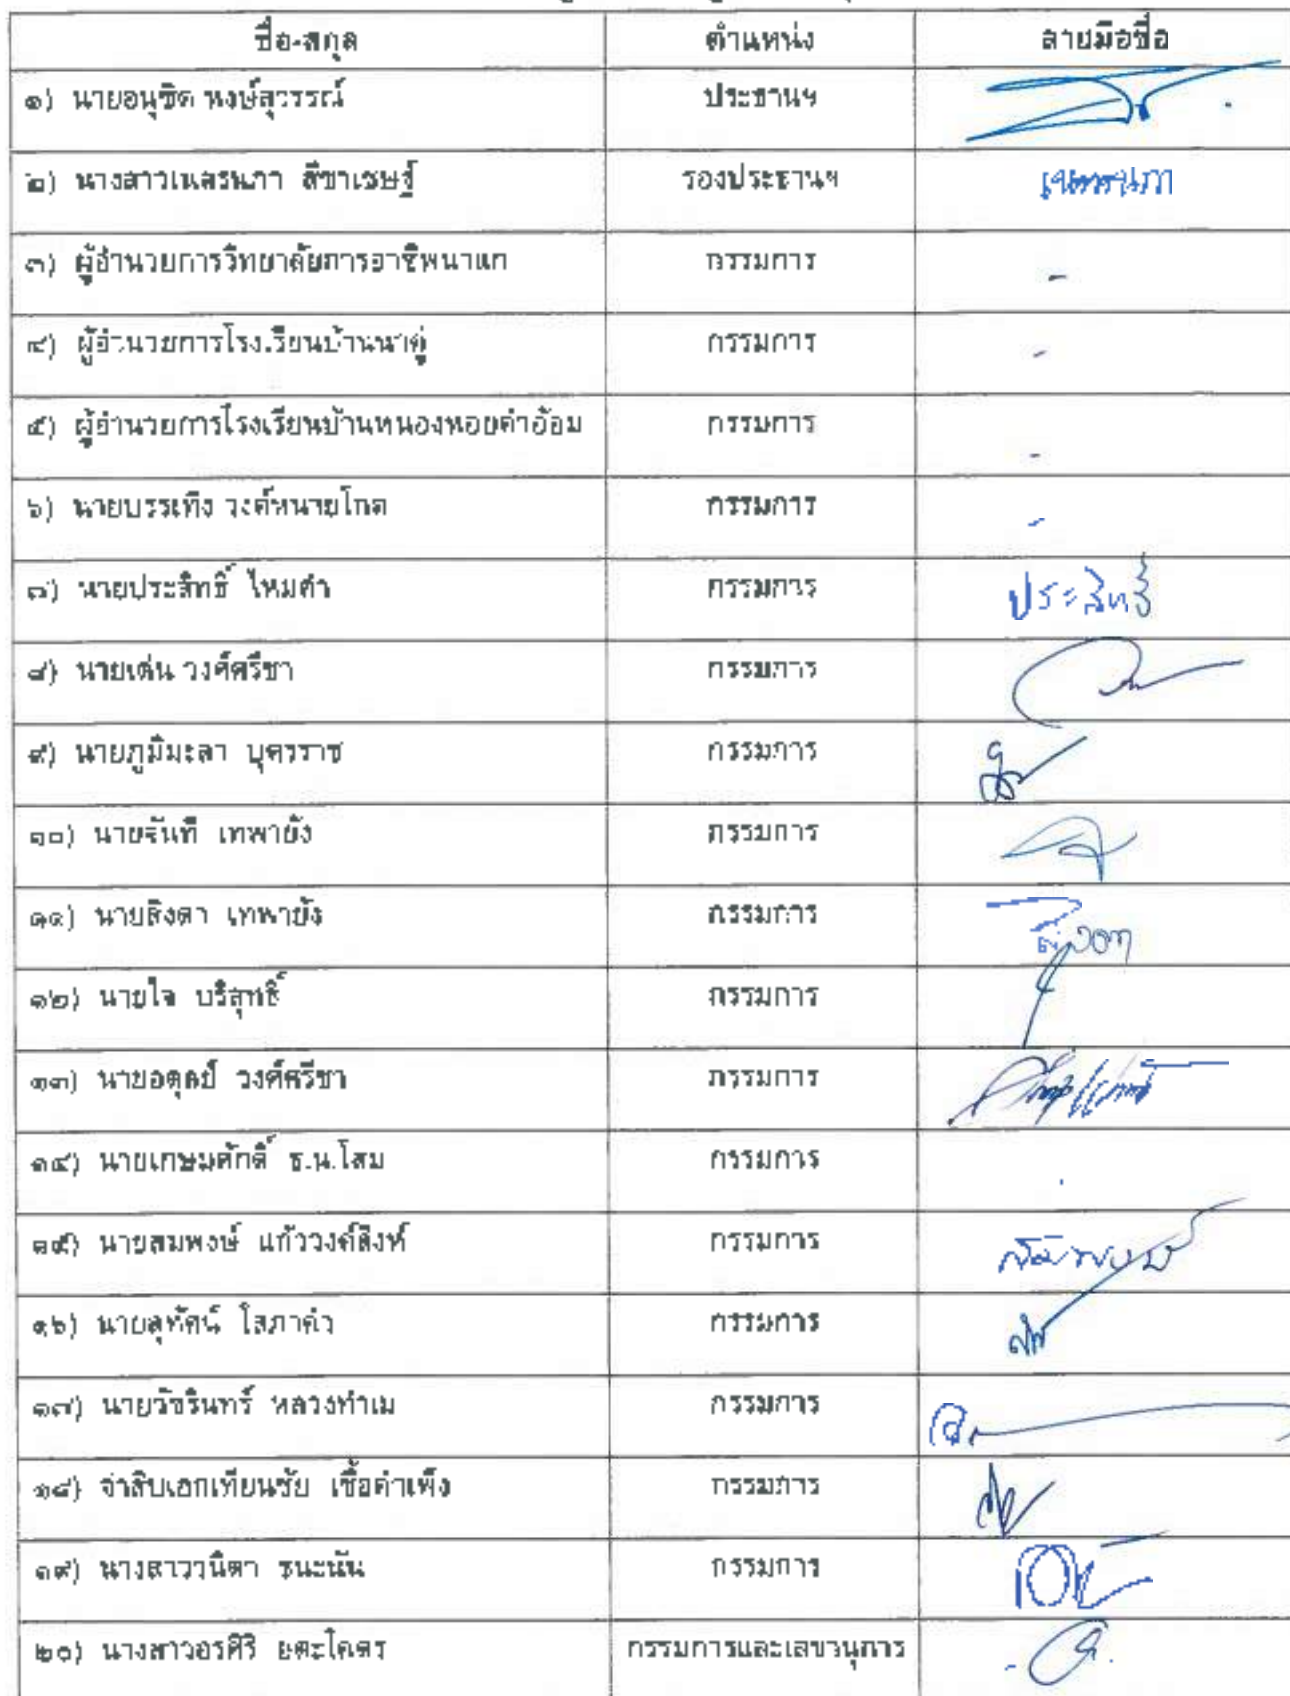 ชื่อ-สกุล ตำแหน่ง ลายมือชื่อ
๑) นายอนุชิต หงษ์สุวรรณ์ ประธานฯ
๒) นางสาวเนตรนภา สีชาเชษฐ์ รองประธานฯ เนตรนภา
๓) ผู้อำนวยการวิทยาลัยการอาชีพนาแก กรรมการ -
๔) ผู้อำนวยการโรงเรียนบ้านนาคู่ กรรมการ -
๕) ผู้อำนวยการโรงเรียนบ้านหนองหอยคำอ้อม กรรมการ -
๖) นายบรรเทิง วงค์หนายโกด กรรมการ -
๗) นายประสิทธิ์ ไหมคำ กรรมการ ประสิทธิ์
๘) นายเด่น วงค์ศรีชา กรรมการ
๙) นายภูมีมะลา บุตรราช กรรมการ
๑๐) นายจันที เทพายัง กรรมการ
๑๑) นายสิงดา เทพายัง กรรมการ
๑๒) นายใจ บริสุทธิ์ กรรมการ
๑๓) นายอดุลย์ วงศ์ศรีชา กรรมการ
๑๔) นายเกษมศักดิ์ ธ.น.โสม กรรมการ
๑๕) นายสมพงษ์ แก้ววงค์สิงห์ กรรมการ สมพงษ์
๑๖) นายสุทัศน์ โสภาคำ กรรมการ
๑๗) นายวัชรินทร์ หลวงทำเม กรรมการ
๑๘) จ่าสิบเอกเทียนชัย เชื้อคำเพ็ง กรรมการ
๑๙) นางสาววนิดา ชนะนัน กรรมการ
๒๐) นางสาวอรศิริ ยตะโคตร กรรมการและเลขานุการ